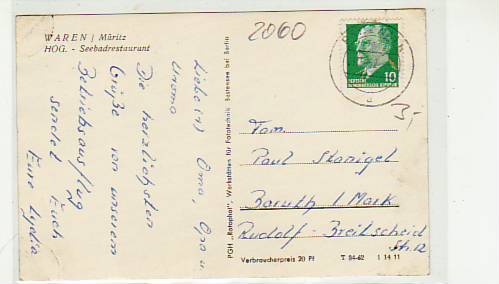 WAREN / Müritz
HOG. - Seebadrestaurant
2060
Liebe(r) Oma, Opa u.
Uroma
Die herzlichsten
Grüße von unserem
Betriebsausflug
sendet Euch
Eure Lydia
PGH „Rotophot“, Werkstätten für Fototechnik Bestensee bei Berlin
10
DEUTSCHE
DEMOKRATISCHE REPUBLIK
3,-
Fam.
Paul
Baruth / Mark
Rudolf - Breitscheid
Str. 12
Verbraucherpreis 20 Pf T 84-62 I 14 11